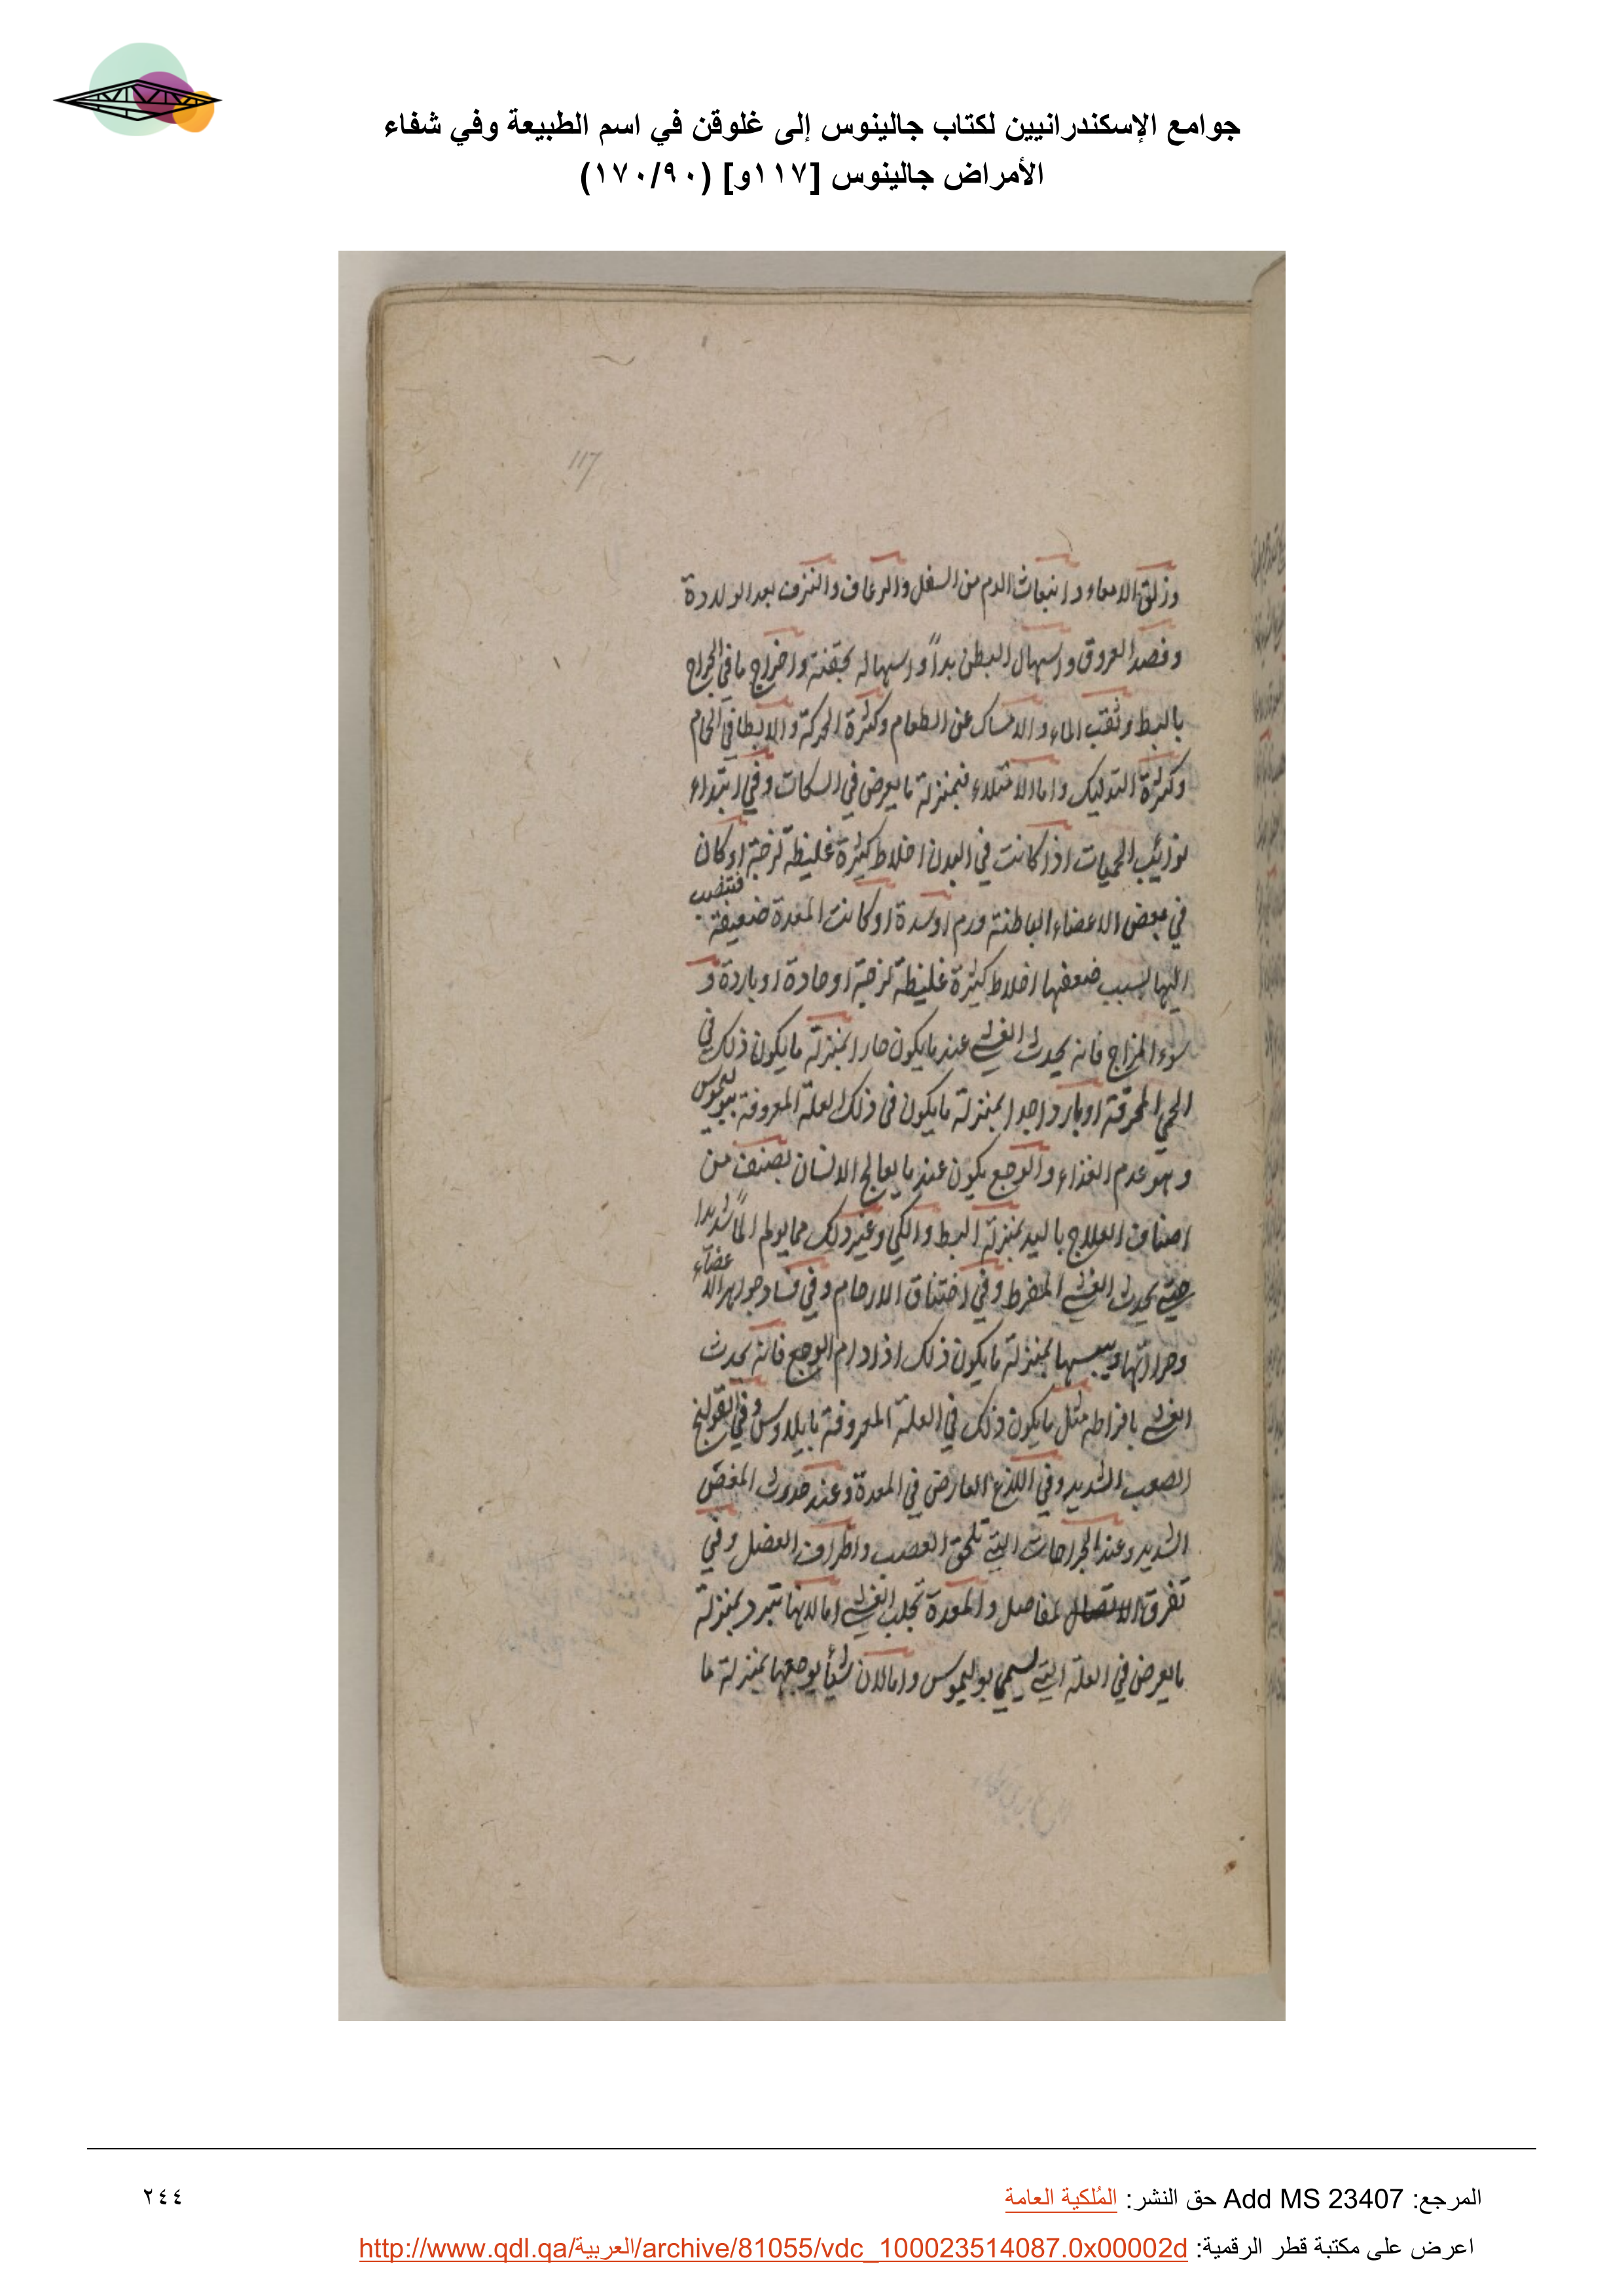 جوامع الإسكندرانيين لكتاب جالينوس إلى غلوقن في اسم الطبيعة وفي شفاء
الأمراض جالينوس [١١٧و] (١٧٠/٩٠)
117
وزلق الامعاء وانبعاث الدم من السفل والرعاف والنزف بعد الولادة
وفصد العروق واسهال البطن بدأً واسهاله بحقنة واخراج ما في الجراح
بالبط وثقب الماء والامساك عن الطعام وكثرة الحركة والابطا في الحمام
وكثرة التدليك واما الامتلاء فبمنزلة ما يعرض في السكات وفي ابتداء
نوائب الحميات اذا كانت في البدن اخلاط كثيرة غليظة لزجة او كان
في بعض الاعضاء الباطنة ورم او سدة او كانت المعدة ضعيفة فتنصب
اليها لسبب ضعفها اخلاط كثيرة غليظة لزجة او حادة او باردة و
سوء المزاج فانه يحدث الغشي عندما يكون حارا بمنزلة ما يكون ذلك في
الحمي المحرقة او باردا جدا بمنزلة ما يكون في ذلك العلة المعروفة ببوليموس
وهو عدم الغذاء والوجع يكون عندما يعالج الانسان بصنف من
اصناف العلاج باليد بمنزلة البط والكي وغير ذلك مما يولم الماً شديدا
حتي يحدث الغشي المفرط وفي اختناق الارحام وفي فساد جواهر الاعضاء
وحرارتها ويبسها بمنزلة ما يكون ذلك اذا دام الوجع فانه يحدث
الغشي بافراطه مثل ما يكون ذلك في العلة المعروفة بايلاوس وفي القولنج
الصعب الشديد وفي اللذع العارض في المعدة وعند حدوث المغص
الشديد وعند الجراحات التي تلحق العصب واطراف العضل وفي
تفرق الاتصال لمفاصل والمعدة تجلب الغشي اما لانها تبرد بمنزلة
ما يعرض في العلة التي تسمي بوليموس واما لان شيأ يوجعها بمنزلة ما
المرجع: Add MS 23407 حق النشر: المُلكية العامة
٢٤٤
اعرض على مكتبة قطر الرقمية: http://www.qdl.qa/العربية/archive/81055/vdc_100023514087.0x00002d